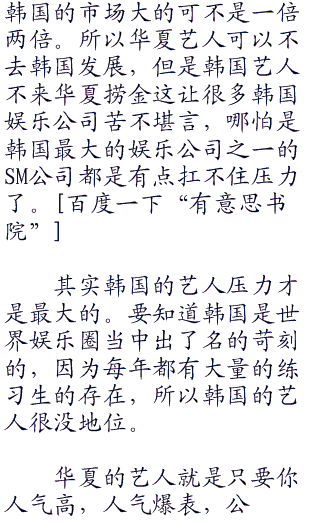 韩国的市场大的可不是一倍
两倍。所以华夏艺人可以不
去韩国发展，但是韩国艺人
不来华夏捞金这让很多韩国
娱乐公司苦不堪言，哪怕是
韩国最大的娱乐公司之一的
SM公司都是有点扛不住压力
了。[百度一下“有意思书
院”]
其实韩国的艺人压力才
是最大的。要知道韩国是世
界娱乐圈当中出了名的苛刻
的，因为每年都有大量的练
习生的存在，所以韩国的艺
人很没地位。
华夏的艺人就是只要你
人气高，人气爆表，公